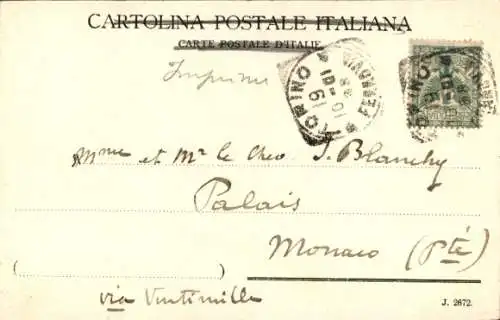 CARTOLINA POSTALE ITALIANA
CARTE POSTALE D'ITALIE
Imprimé
TORINO
FERROVIA
TORINO
Mme et Mr le Chev J. Blanchy
Palais
Monaco (Pté)
via Vintimille
J. 2672.